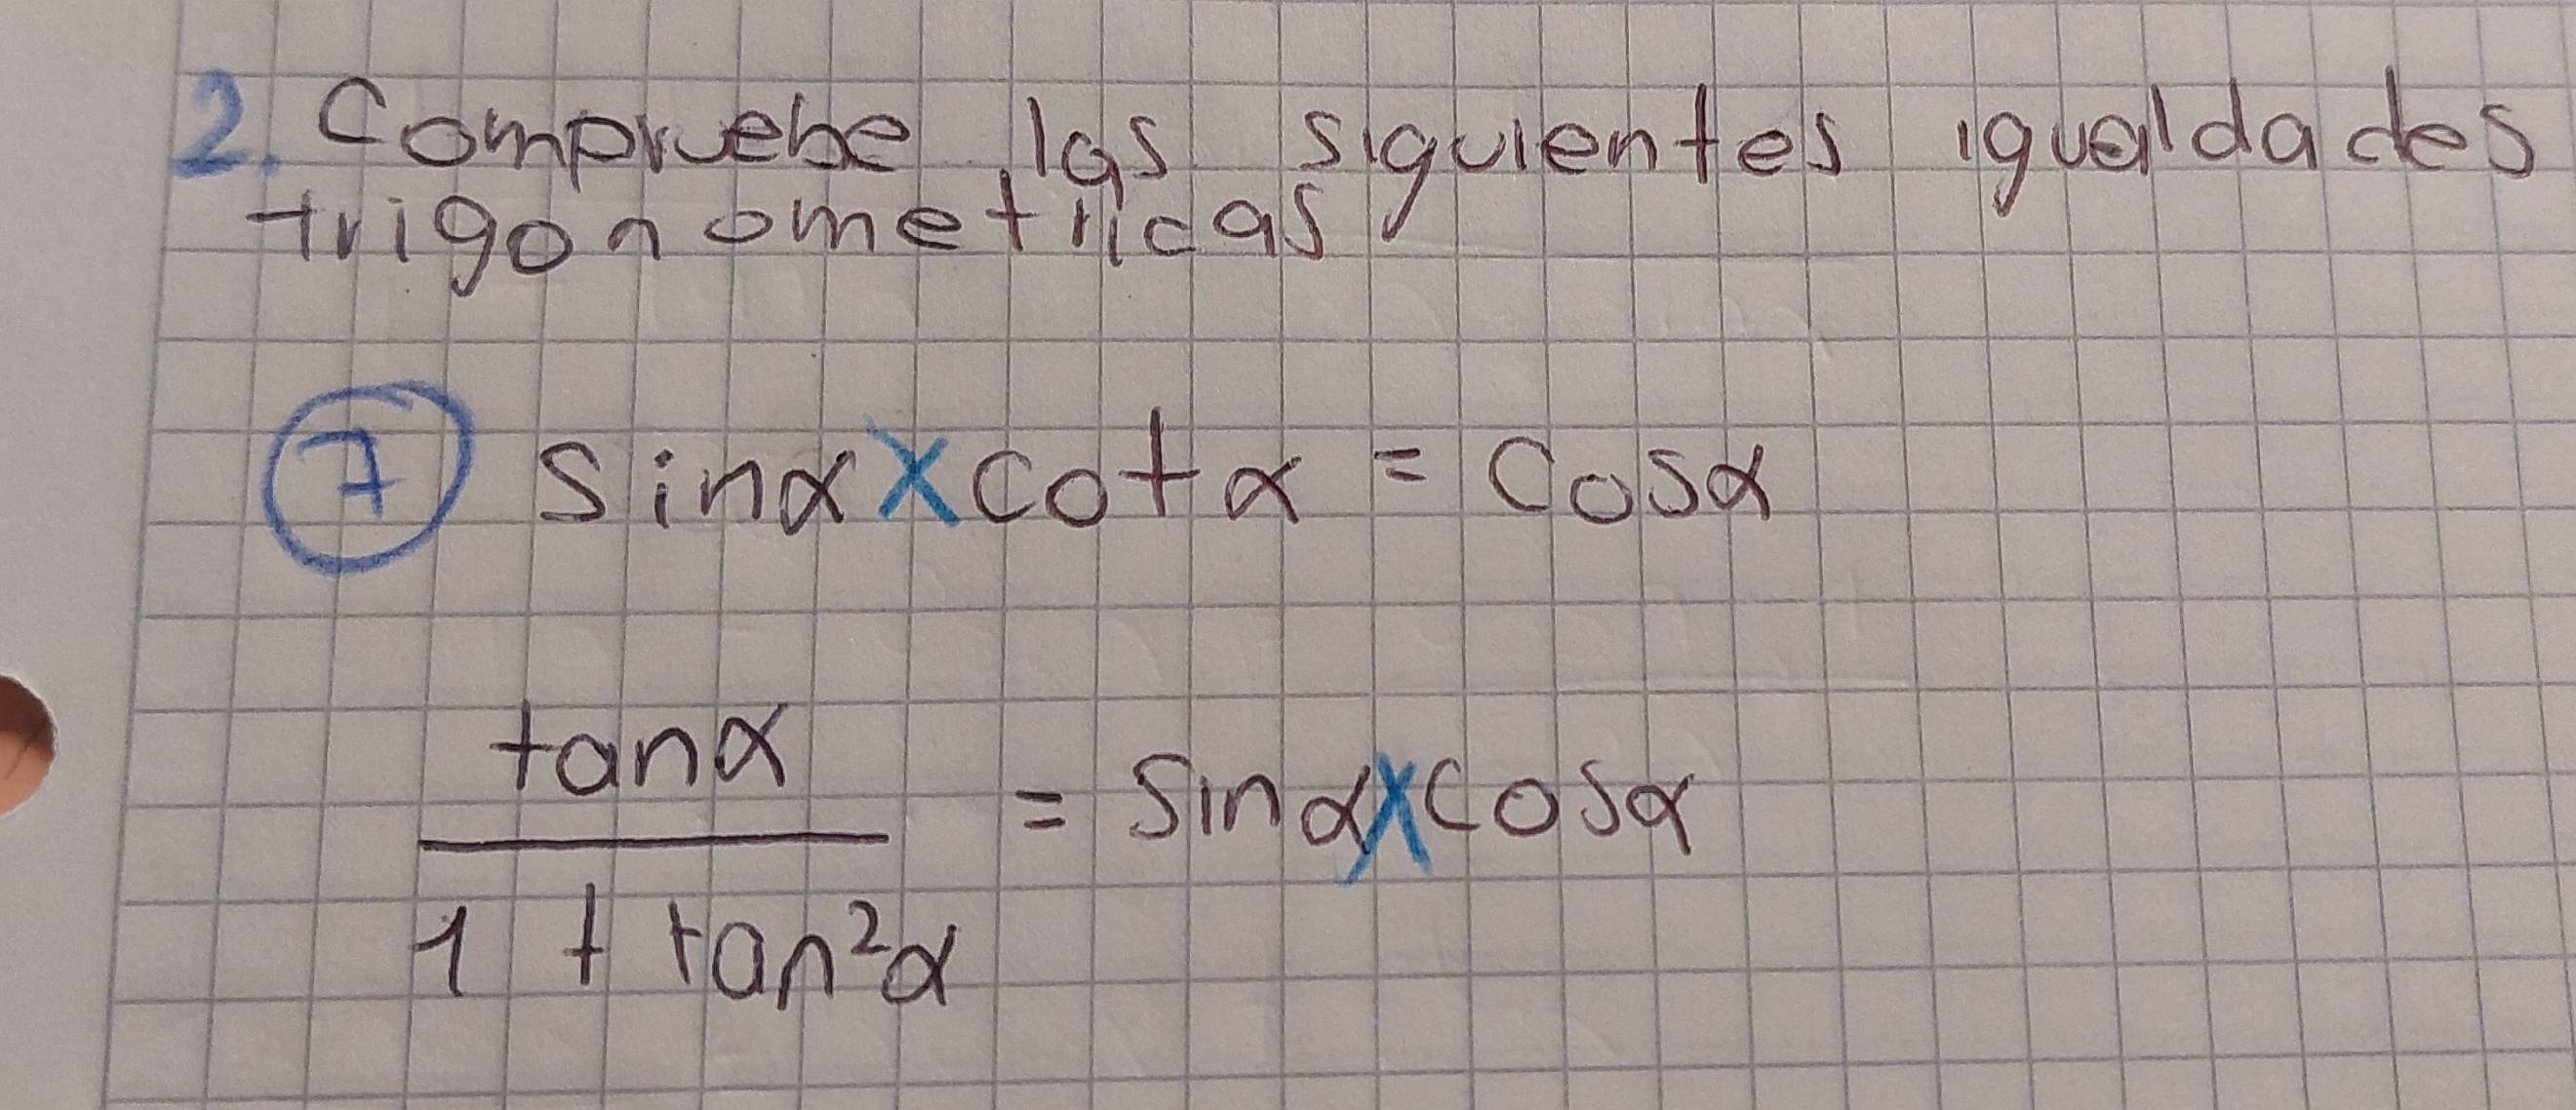 2. Compruebe las siguientes igualdades
trigonometricas
7 sinα x cotα = cosα
tanα
= sinα x cosα
1 + tan²α